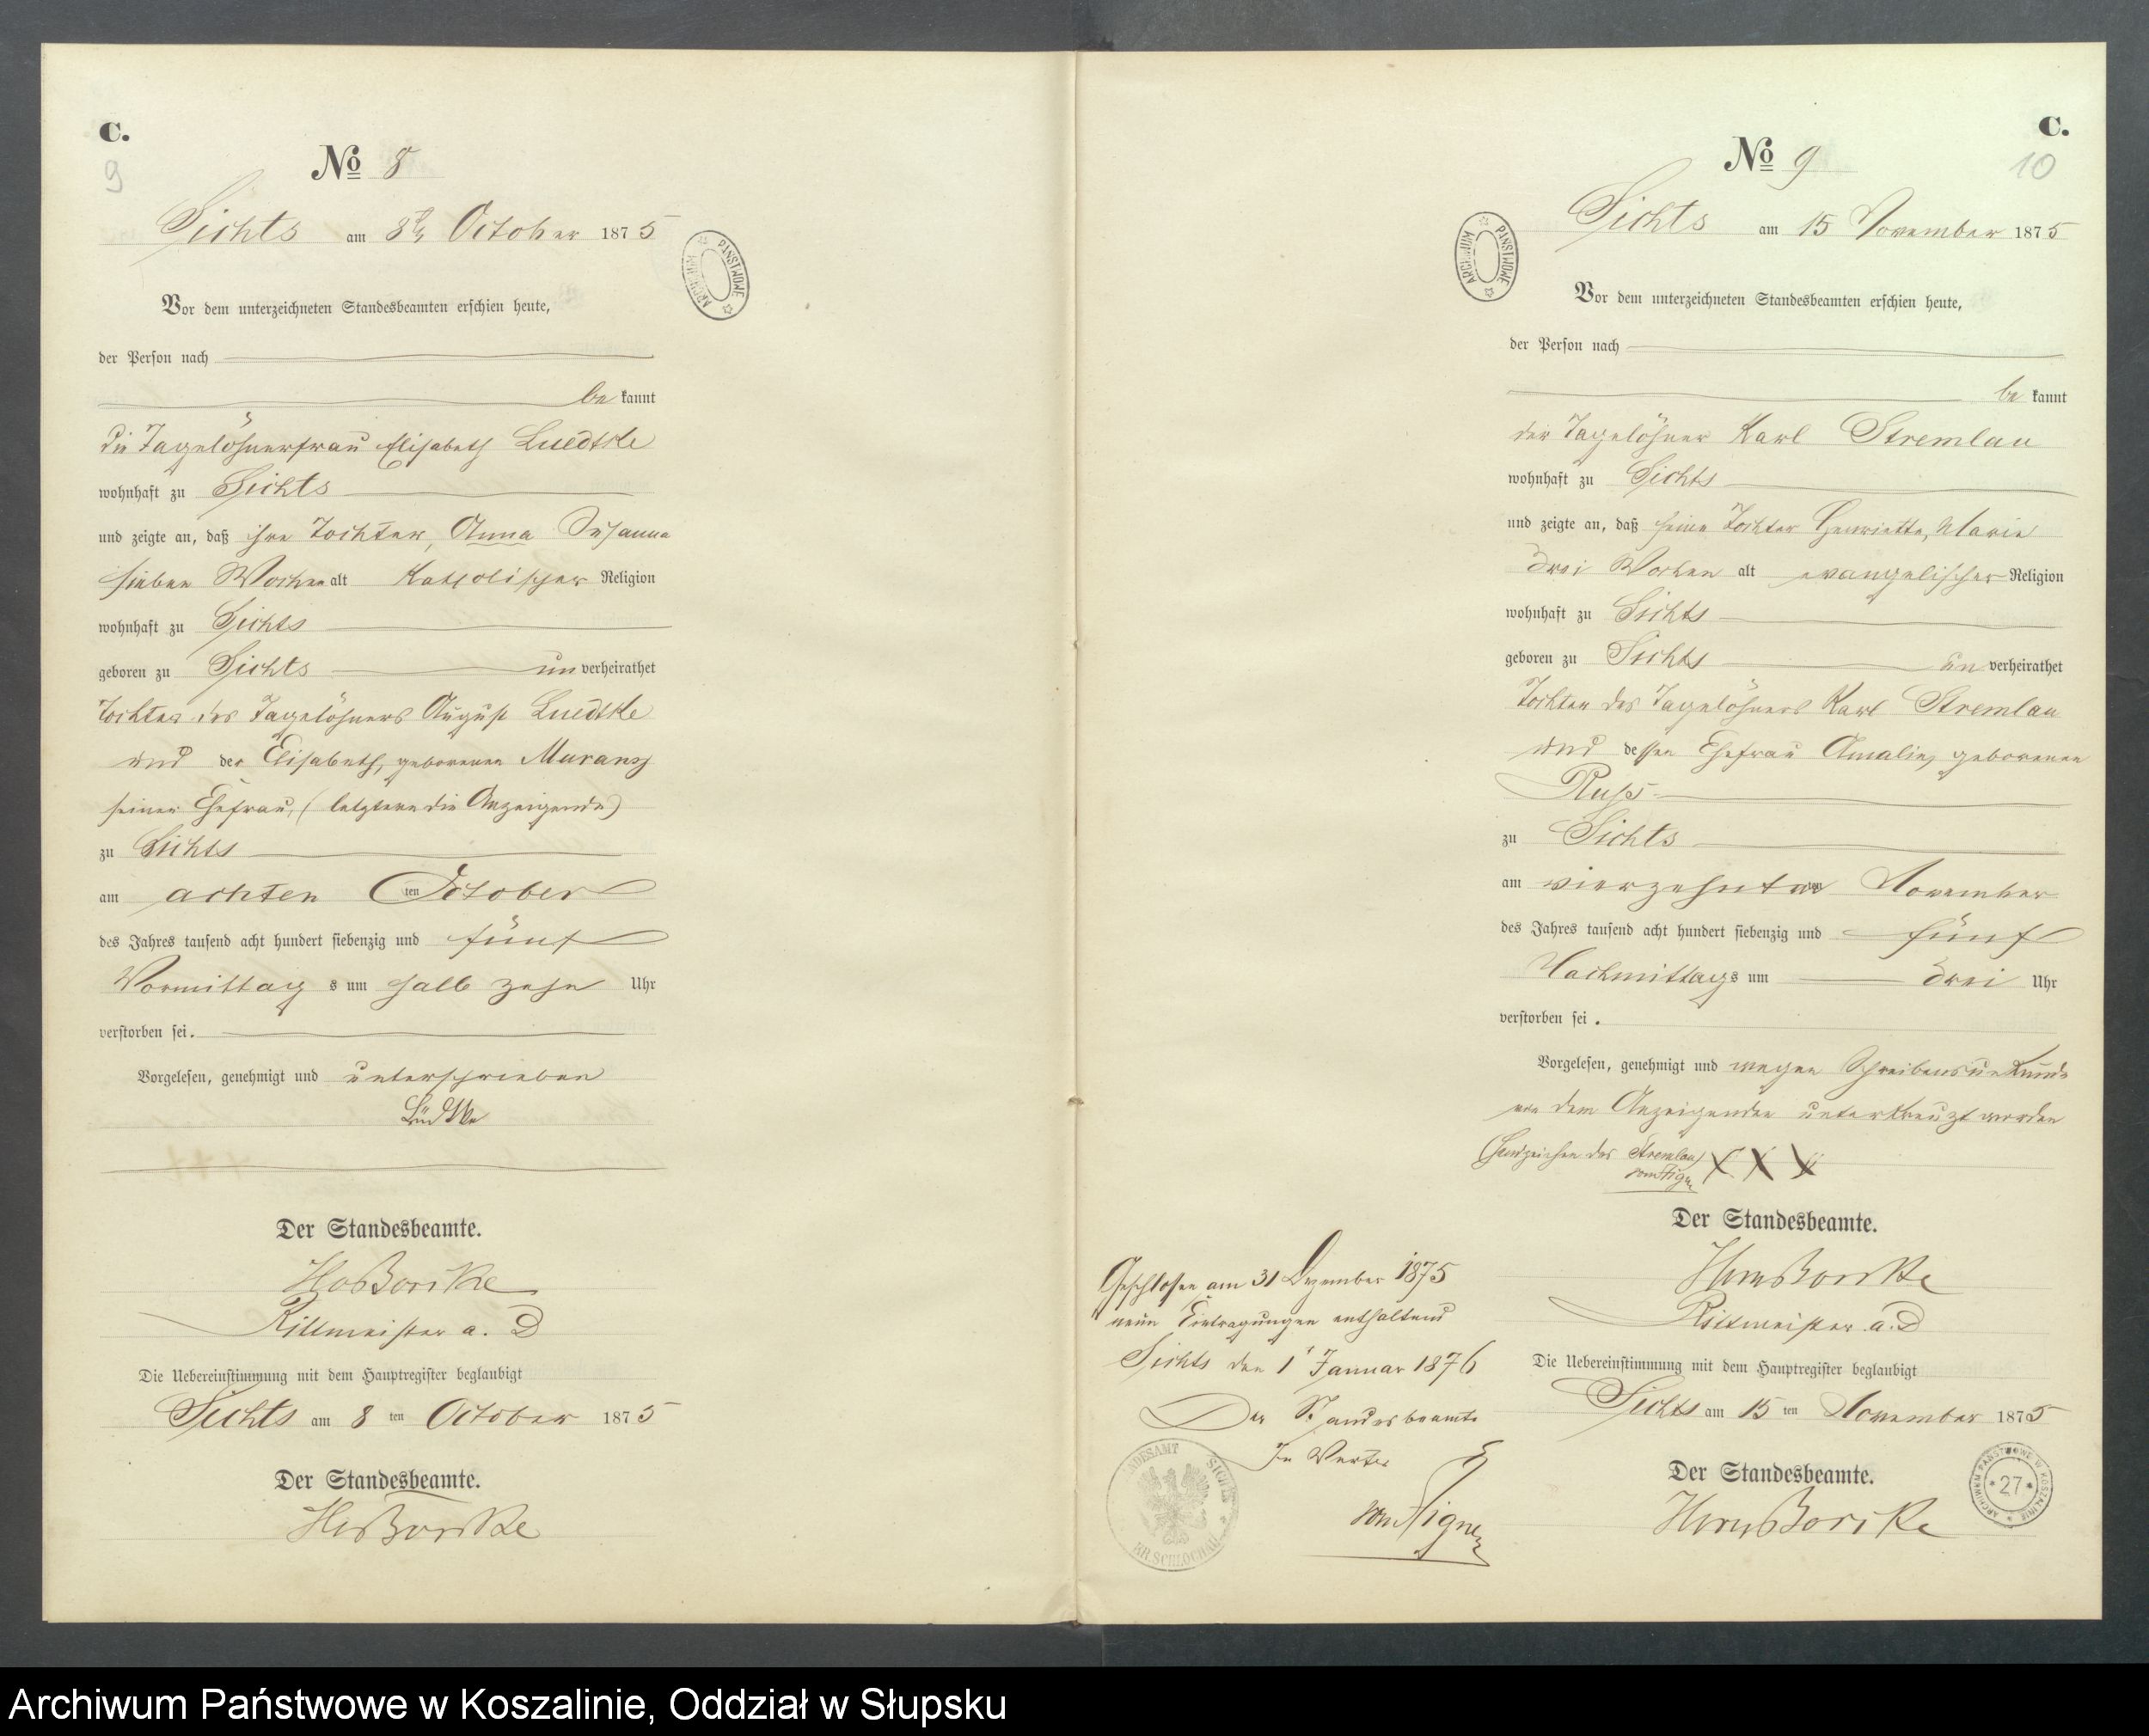 C.
9
No 8
Sichts am 8t October 1875
Vor dem unterzeichneten Standesbeamten erschien heute,
der Person nach
be kannt
die Tagelöhnerfrau Elisabeth Luedtke
wohnhaft zu Sichts
und zeigte an, daß ihre Tochter, Anna Susanna
sieben Wochen alt Katholischer Religion
wohnhaft zu Sichts
geboren zu Sichts un verheirathet
Tochter des Tagelöhners August Luedtke
und der Elisabeth, geborenen Muranz
seiner Ehefrau, (letztere die Anzeigende)
zu Sichts
am achten ten October
des Jahres tausend acht hundert siebenzig und fünf
Vormittag s um halb zehn Uhr
verstorben sei.
Vorgelesen, genehmigt und unterschrieben
Lüdtke
Der Standesbeamte.
Rittmeister a. D
Die Uebereinstimmung mit dem Hauptregister beglaubigt
Sichts am 8 ten October 1875
Der Standesbeamte.
ARCHIWUM PAŃSTWOWE
C.
10
No 9
Sichts am 15 November 1875
Vor dem unterzeichneten Standesbeamten erschien heute,
der Person nach
be kannt
der Tagelöhner Karl Stremlau
wohnhaft zu Sichts
und zeigte an, daß seine Tochter Henriette, Marie
drei Wochen alt evangelischer Religion
wohnhaft zu Sichts
geboren zu Sichts un verheirathet
Tochter des Tagelöhners Karl Stremlau
und dessen Ehefrau Amalie, geborenen
Russ
zu Sichts
am vierzehnten November
des Jahres tausend acht hundert siebenzig und fünf
Nachmittags um drei Uhr
verstorben sei.
Vorgelesen, genehmigt und wegen Schreibensunkunde
von dem Anzeigenden unterkreuzt worden
Handzeichen des Stremlau) X X X
Der Standesbeamte.
Rittmeister a. D
Die Uebereinstimmung mit dem Hauptregister beglaubigt
Sichts am 15 ten November 1875
Der Standesbeamte.
ARCHIWUM PAŃSTWOWE
Geschlossen am 31 Dezember 1875
neun Eintragungen enthaltend
Sichts den 1t Januar 1876
Der Standesbeamte
In Vertr
STANDESAMT SICHTS
KR. SCHLOCHAU
ARCHIWUM PAŃSTWOWE W KOSZALINIE
* 27 *
Archiwum Państwowe w Koszalinie, Oddział w Słupsku